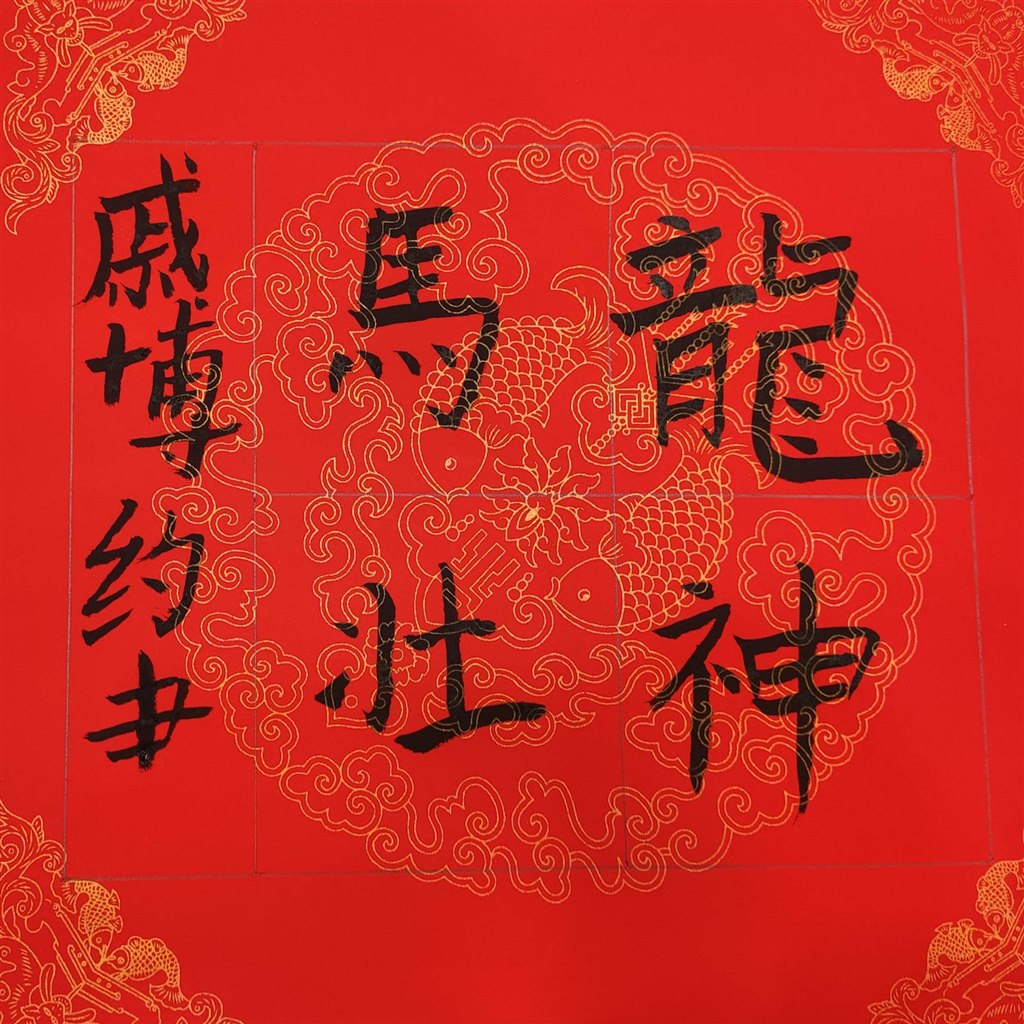 龍神
馬壮
戚博约书